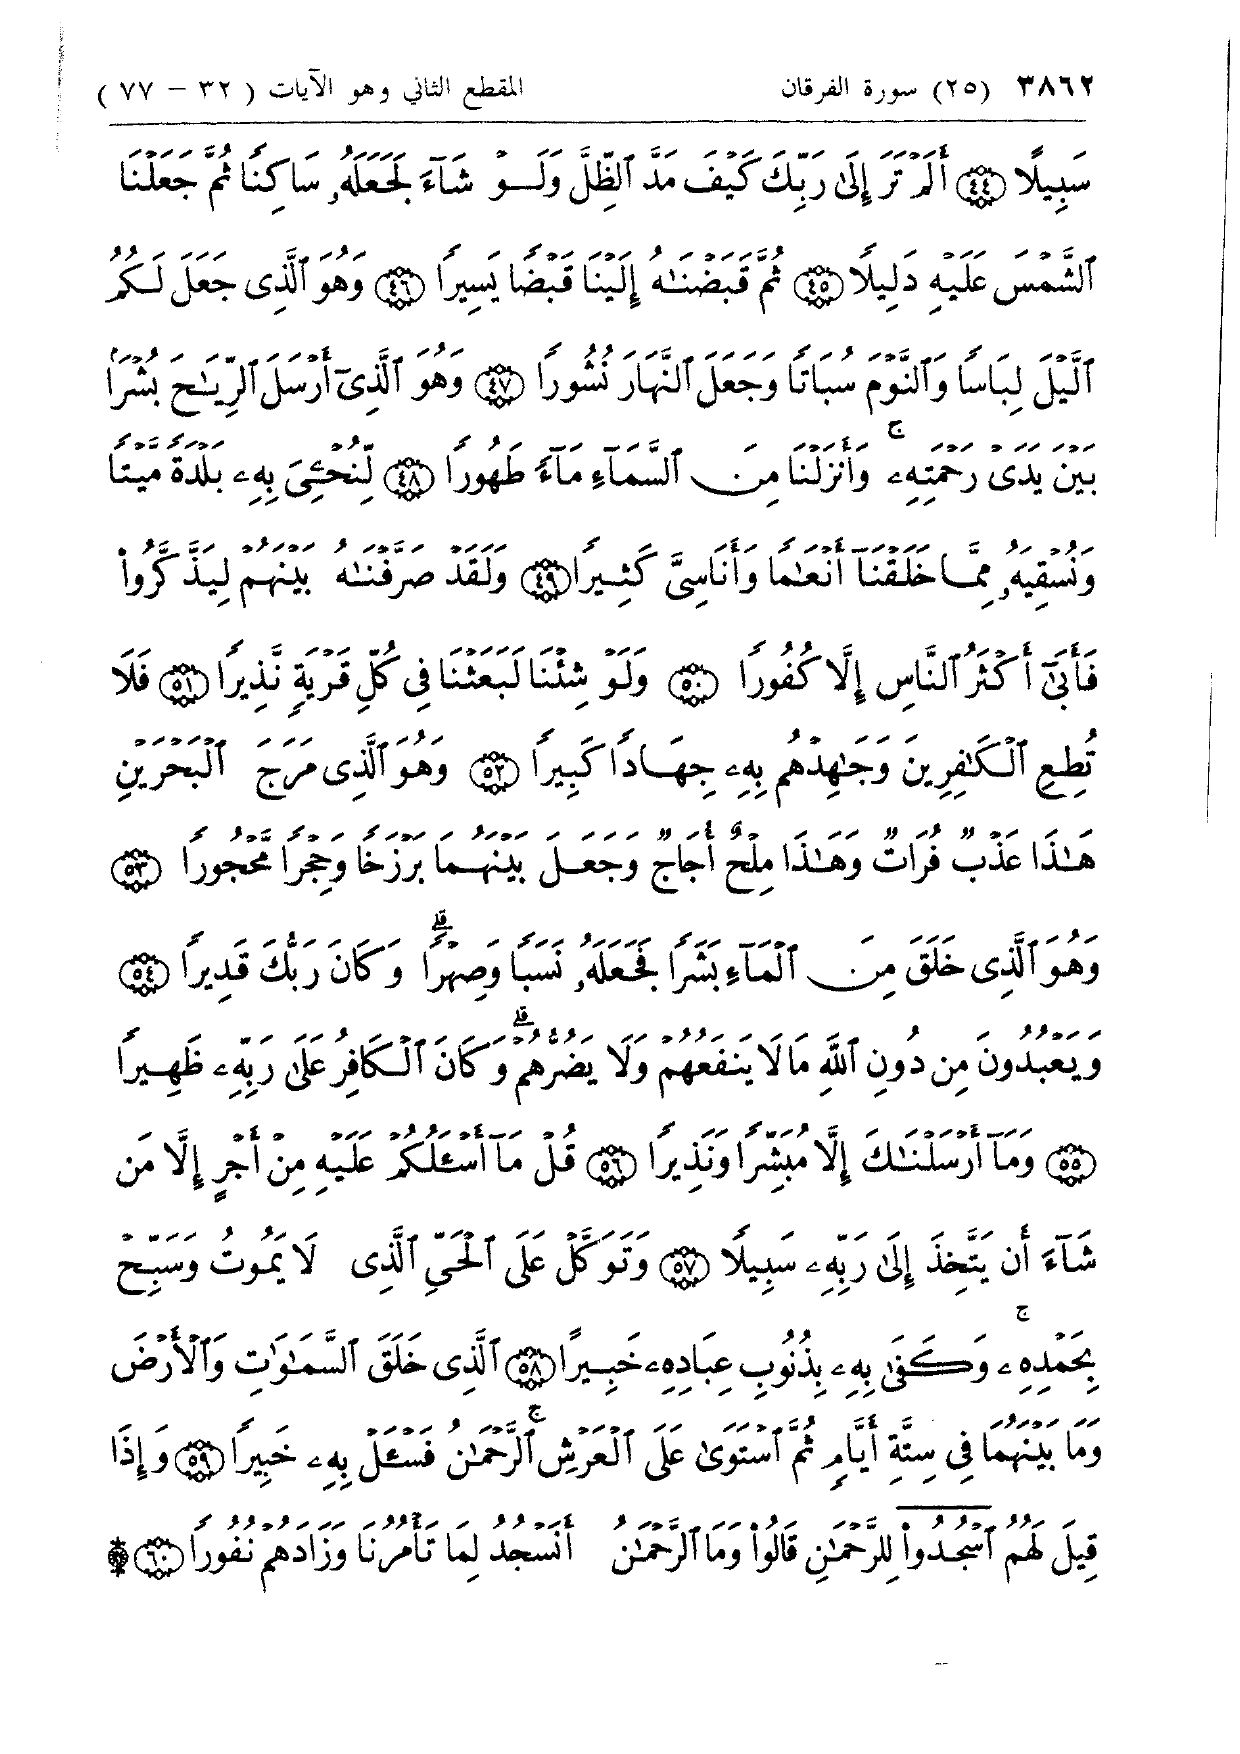 ٣٨٦٢ (٢٥) سورة الفرقان المقطع الثاني وهو الآيات ( ٣٢ - ٧٧ )
سَبِيلًا ﴿٤٤﴾ أَلَمْ تَرَ إِلَىٰ رَبِّكَ كَيْفَ مَدَّ ٱلظِّلَّ وَلَوْ شَآءَ لَجَعَلَهُۥ سَاكِنًا ثُمَّ جَعَلْنَا
ٱلشَّمْسَ عَلَيْهِ دَلِيلًا ﴿٤٥﴾ ثُمَّ قَبَضْنَٰهُ إِلَيْنَا قَبْضًا يَسِيرًا ﴿٤٦﴾ وَهُوَ ٱلَّذِى جَعَلَ لَكُمُ
ٱلَّيْلَ لِبَاسًا وَٱلنَّوْمَ سُبَاتًا وَجَعَلَ ٱلنَّهَارَ نُشُورًا ﴿٤٧﴾ وَهُوَ ٱلَّذِىٓ أَرْسَلَ ٱلرِّيَٰحَ بُشْرًۢا
بَيْنَ يَدَىْ رَحْمَتِهِۦ ۚ وَأَنزَلْنَا مِنَ ٱلسَّمَآءِ مَآءً طَهُورًا ﴿٤٨﴾ لِّنُحْـِۧىَ بِهِۦ بَلْدَةً مَّيْتًا
وَنُسْقِيَهُۥ مِمَّا خَلَقْنَآ أَنْعَٰمًا وَأَنَاسِىَّ كَثِيرًا ﴿٤٩﴾ وَلَقَدْ صَرَّفْنَٰهُ بَيْنَهُمْ لِيَذَّكَّرُوا۟
فَأَبَىٰٓ أَكْثَرُ ٱلنَّاسِ إِلَّا كُفُورًا ﴿٥٠﴾ وَلَوْ شِئْنَا لَبَعَثْنَا فِى كُلِّ قَرْيَةٍ نَّذِيرًا ﴿٥١﴾ فَلَا
تُطِعِ ٱلْكَٰفِرِينَ وَجَٰهِدْهُم بِهِۦ جِهَادًا كَبِيرًا ﴿٥٢﴾ وَهُوَ ٱلَّذِى مَرَجَ ٱلْبَحْرَيْنِ
هَٰذَا عَذْبٌ فُرَاتٌ وَهَٰذَا مِلْحٌ أُجَاجٌ وَجَعَلَ بَيْنَهُمَا بَرْزَخًا وَحِجْرًا مَّحْجُورًا ﴿٥٣﴾
وَهُوَ ٱلَّذِى خَلَقَ مِنَ ٱلْمَآءِ بَشَرًا فَجَعَلَهُۥ نَسَبًا وَصِهْرًا ۗ وَكَانَ رَبُّكَ قَدِيرًا ﴿٥٤﴾
وَيَعْبُدُونَ مِن دُونِ ٱللَّهِ مَا لَا يَنفَعُهُمْ وَلَا يَضُرُّهُمْ ۗ وَكَانَ ٱلْكَافِرُ عَلَىٰ رَبِّهِۦ ظَهِيرًا
﴿٥٥﴾ وَمَآ أَرْسَلْنَٰكَ إِلَّا مُبَشِّرًا وَنَذِيرًا ﴿٥٦﴾ قُلْ مَآ أَسْـَٔلُكُمْ عَلَيْهِ مِنْ أَجْرٍ إِلَّا مَن
شَآءَ أَن يَتَّخِذَ إِلَىٰ رَبِّهِۦ سَبِيلًا ﴿٥٧﴾ وَتَوَكَّلْ عَلَى ٱلْحَىِّ ٱلَّذِى لَا يَمُوتُ وَسَبِّحْ
بِحَمْدِهِۦ ۚ وَكَفَىٰ بِهِۦ بِذُنُوبِ عِبَادِهِۦ خَبِيرًا ﴿٥٨﴾ ٱلَّذِى خَلَقَ ٱلسَّمَٰوَٰتِ وَٱلْأَرْضَ
وَمَا بَيْنَهُمَا فِى سِتَّةِ أَيَّامٍ ثُمَّ ٱسْتَوَىٰ عَلَى ٱلْعَرْشِ ۚ ٱلرَّحْمَٰنُ فَسْـَٔلْ بِهِۦ خَبِيرًا ﴿٥٩﴾ وَإِذَا
قِيلَ لَهُمُ ٱسْجُدُوا۟ لِلرَّحْمَٰنِ قَالُوا۟ وَمَا ٱلرَّحْمَٰنُ أَنَسْجُدُ لِمَا تَأْمُرُنَا وَزَادَهُمْ نُفُورًا ﴿٦٠﴾ ۞